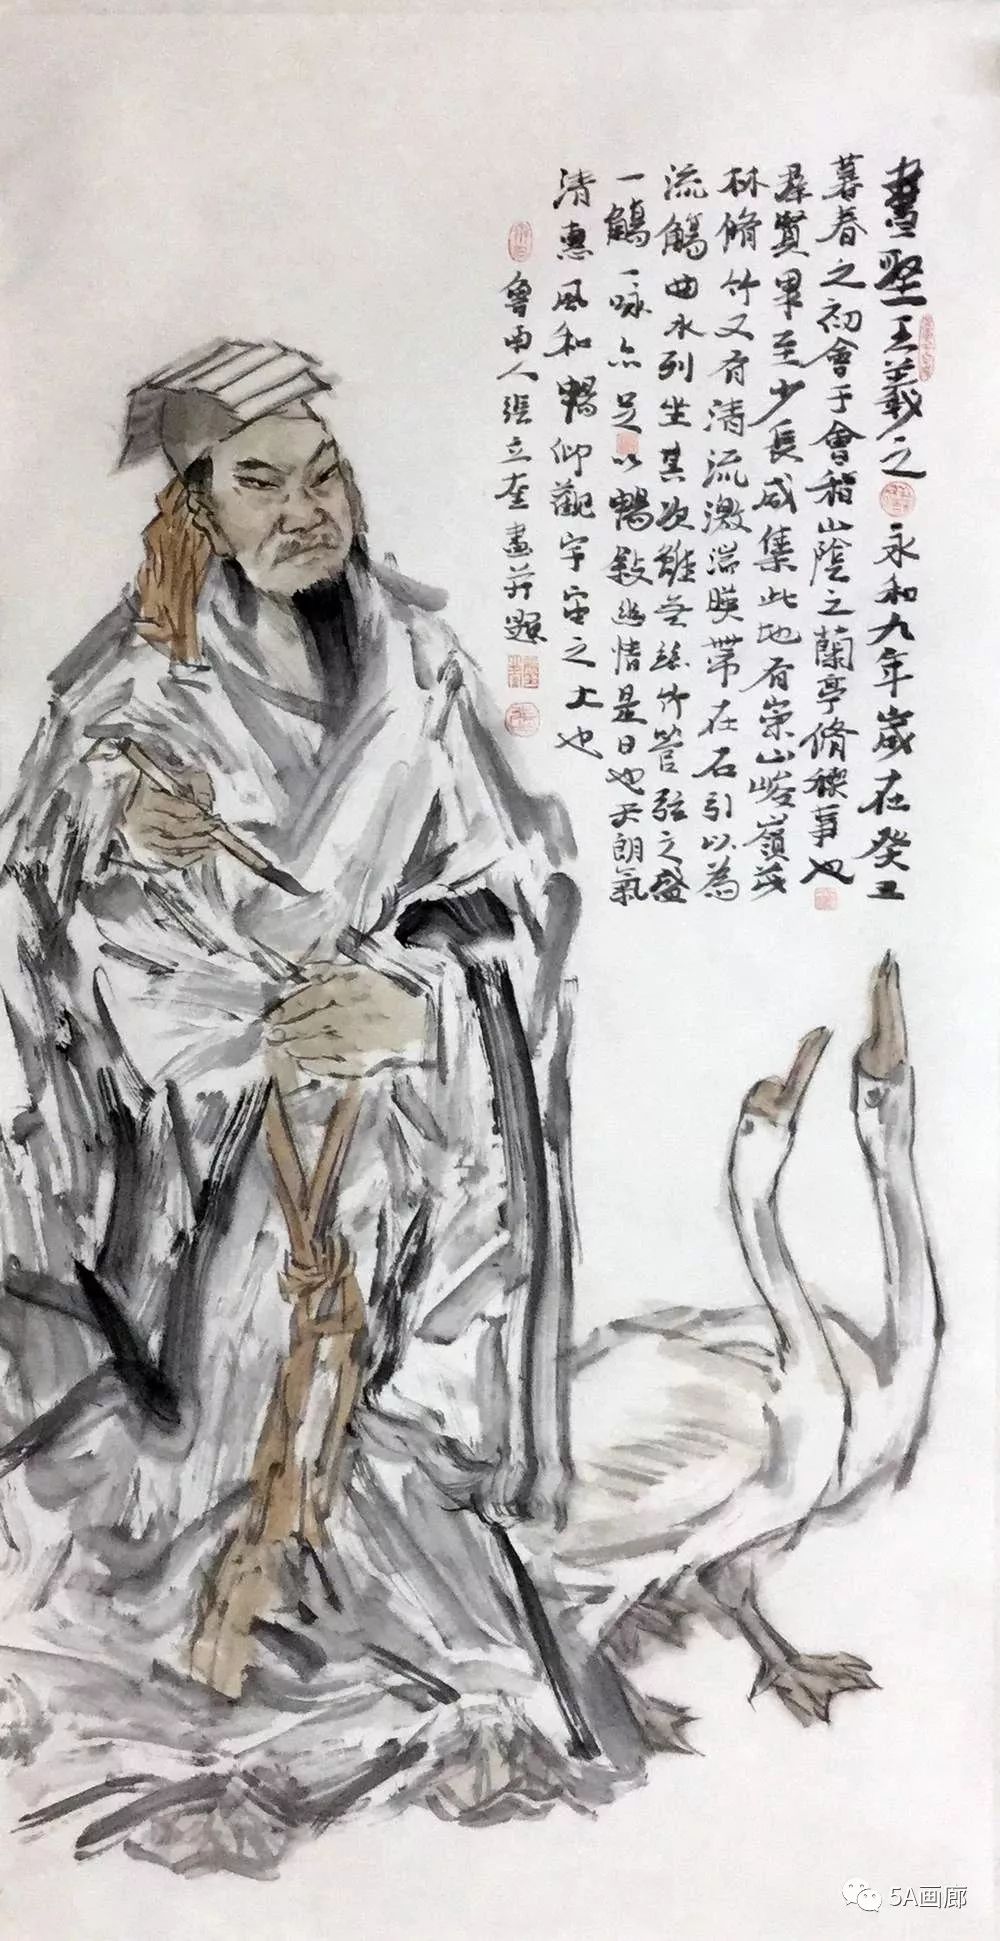 書聖王羲之 永和九年歲在癸丑
暮春之初會于會稽山陰之蘭亭脩稧事也
羣賢畢至少長咸集此地有崇山峻嶺茂
林脩竹又有清流激湍暎帶左右引以為
流觴曲水列坐其次雖無絲竹管弦之盛
一觴一咏亦足以暢敍幽情是日也天朗氣
清惠風和暢仰觀宇宙之大也
魯南人張立奎畫并題
5A画廊